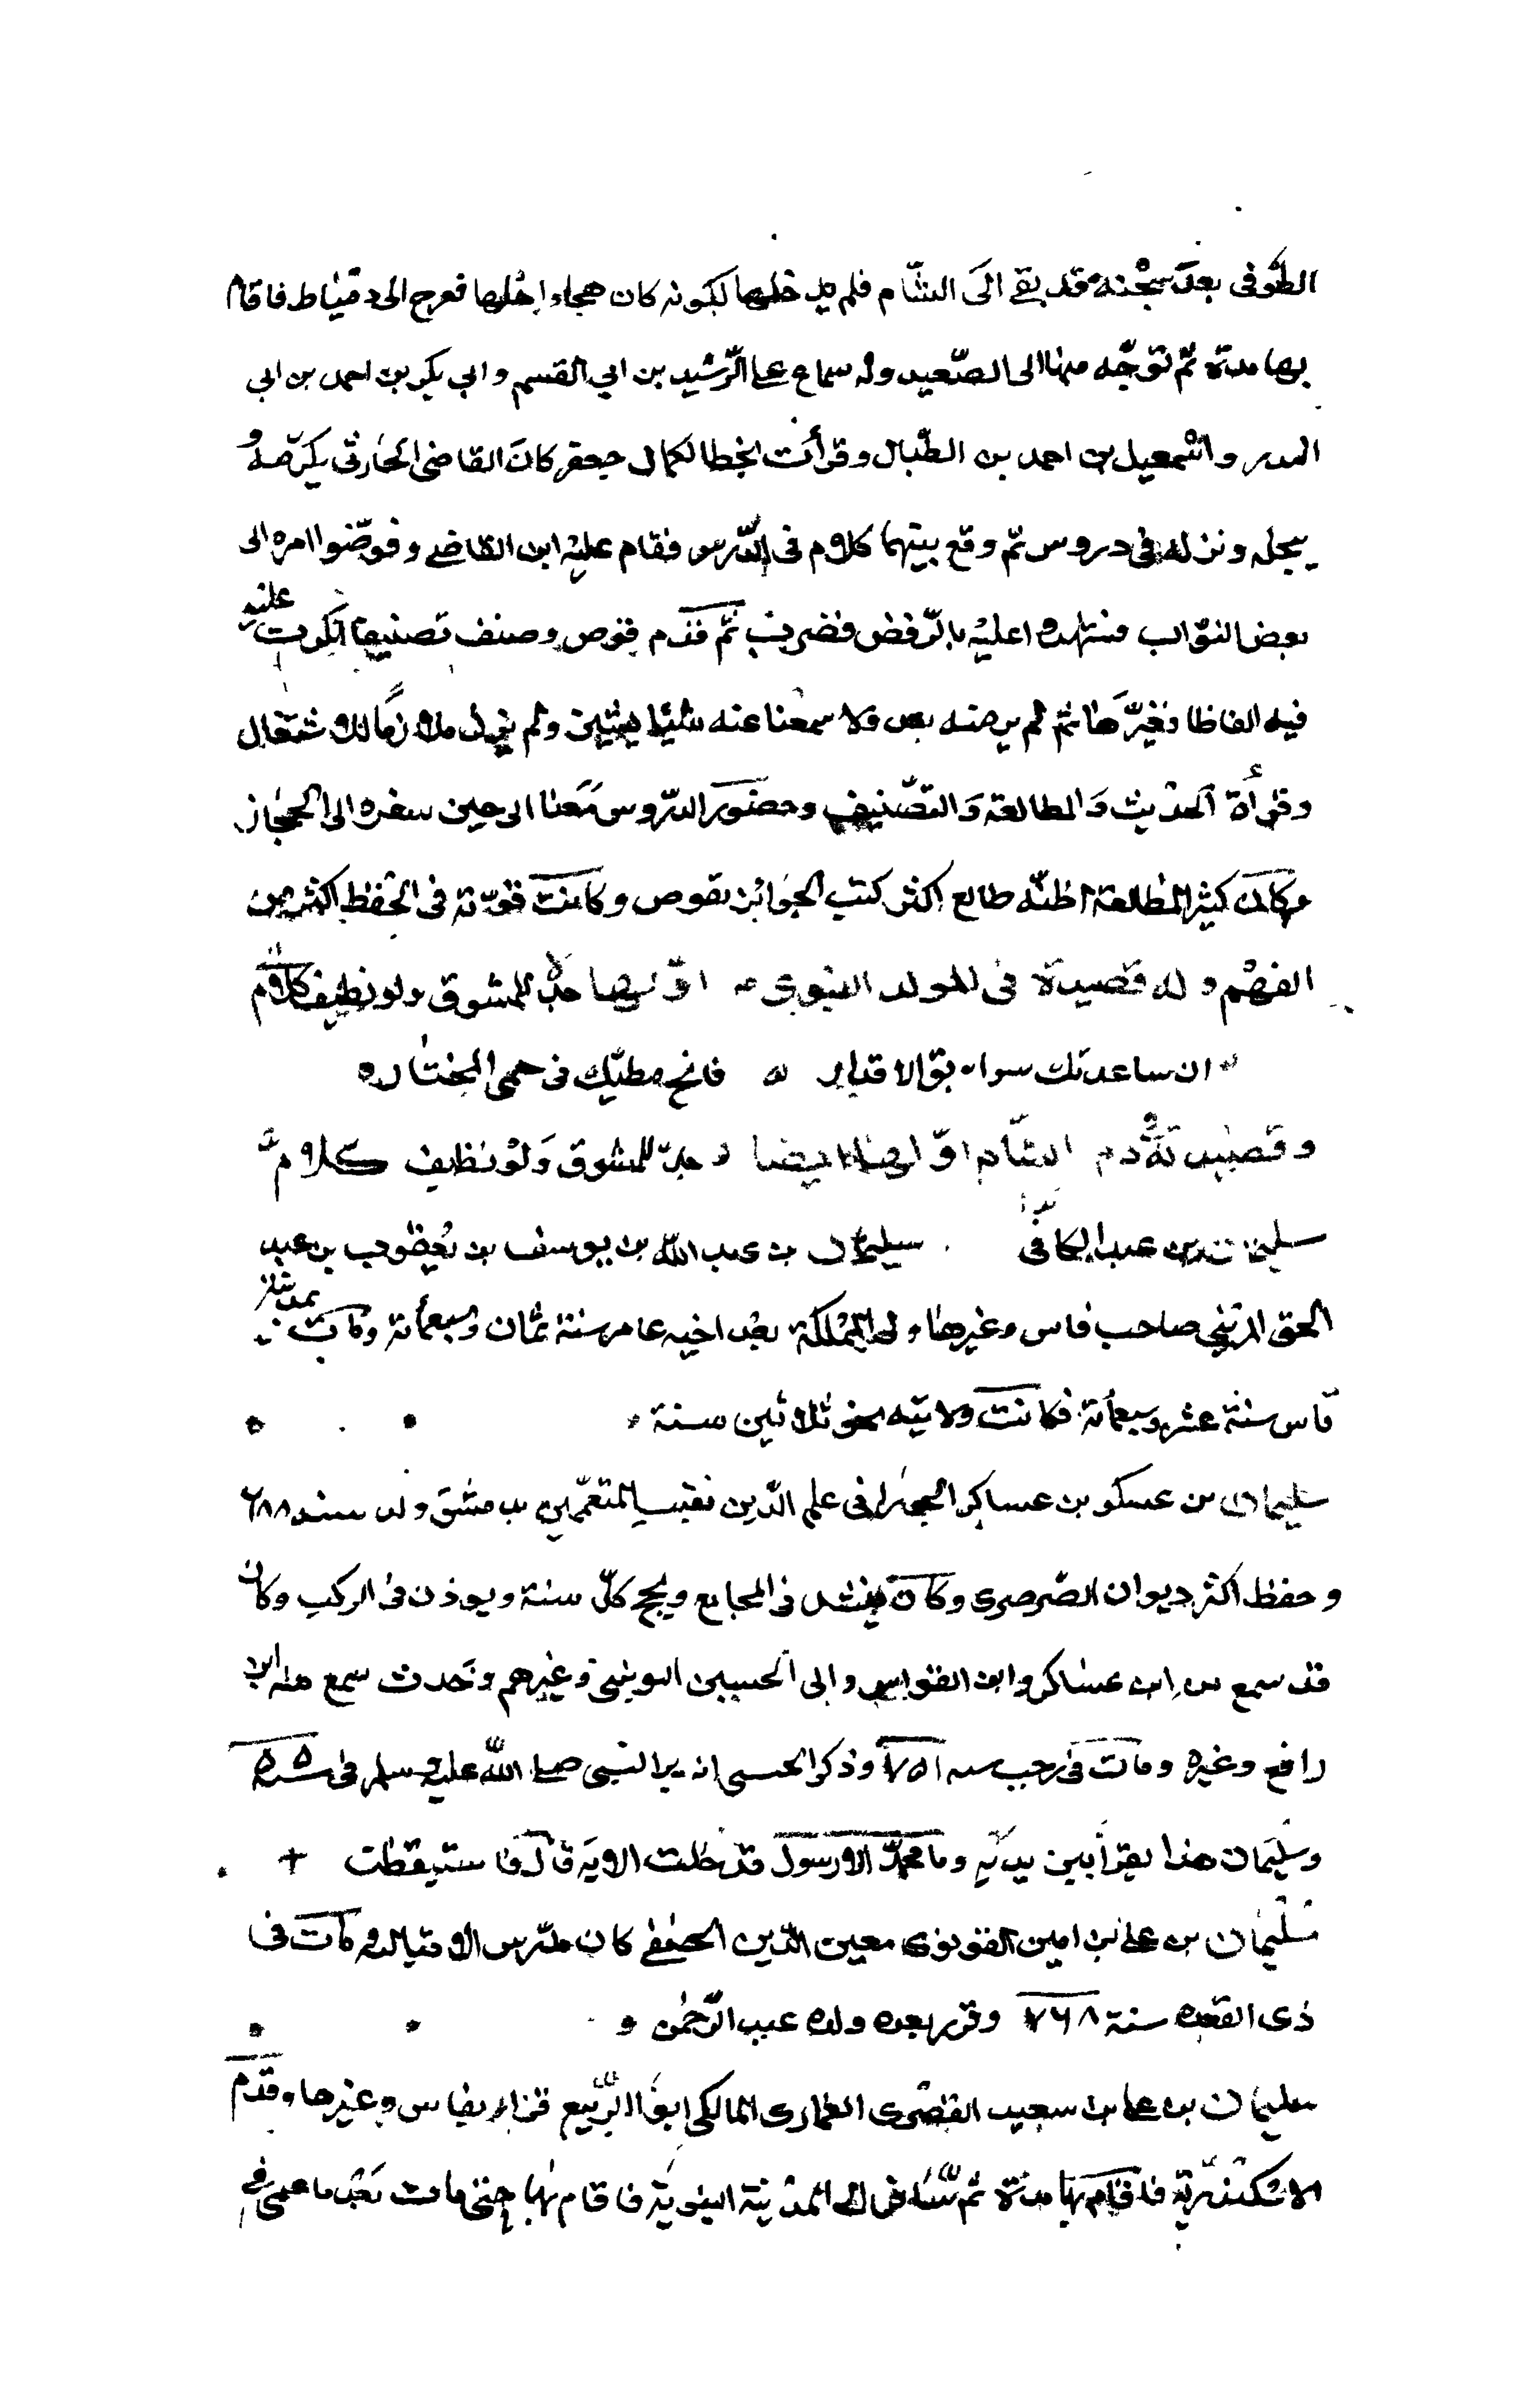 الطوفى بعد سجنه قد بقى الى الشام فلم يدخلها لكونه كان هجاء اهلها فعرج الى دمياط فاقام
بها مدة ثم توجّه منها الى الصّعيد وله سماع على الرّشيد بن ابى القسم و ابى بكر بن احمد بن ابى
البدر و اسمعيل بن احمد بن الطبال وقرأت بخط الكمال جعفر كان القاضى الحارثى يكرمه و
يبجله ونزله فى دروس ثم وقع بينهما كلام فى الدّرس فقام عليه ابن القاضى وفوضوا امره الى
بعض النوّاب فشهدوا عليه بالرّفض فضرب ثم قدم قوص وصنف تصنيفا انكرت عليه
فيه الفاظا فغيّرها ثم لم ير منه بعد ولا سمعنا عنه شيئا يشين ولم يزل ملازما للاشتغال
وقرأة الحديث والمطالعة والتصّنيف وحضور الدّروس معنا الى حين سفره الى الحجاز
وكان كثير المطالعة اظنّه طالع اكثر كتب الخزائن بقوص وكانت قوّته فى الحفظ اكثر من
الفهم وله قصيدة فى المولد النبوى اوّلها
ان ساعدتك سوابق الاقدار فانخ مطيّك فى حمى المختار
وقصيدة فى ذم الشّام اوّلها ايضا جد للمشوق ولو بطيف كلام
سليمن بن عبد الكافى سليمان بن عبد الله بن يوسف بن يعقوب بن عبد
الحق المرينى صاحب فاس وغيرها ولى المملكة بعد اخيه عامر سنة ثمان وسبعمأئة ومات
فاس سنة عشر وسبعمأئة فكانت ولايته نحو ثلاثين سنة
سليمان بن عسكر بن عساكر علم الدّين نقيب المتعمّمين بدمشق ولد سنة ٦٨٨
وحفظ اكثر ديوان الصّرصرى وكان ينشد فى المجامع ويحج كلّ سنة ويوذن فى الركب وكان
قد سمع من ابن عساكر وابن القواس وابى الحسين اليونينى وغيرهم وحدث سمع منه ابن
رافع وغيره ومات فى رجب سنه ٧٥١ وذكر الحسينى انه راى النبى صلى الله عليه وسلم فى سنة
وسليمان هذا يقرأ بين يديه وما محمّد الا رسول قد خلت الاية قال فاستيقظت
سليمان بن على بن امين القونوى معين الدّين الحنفى كان مدّرس الاقبالية ومات فى
ذى القعده سنة ٧٦٨ وقرر بعده ولده عبد الرّحمن
سليمان بن على بن سعيد القصرى الغمارى المالكى ابو الرّبيع قرأ بفاس وغيرها وقدم
الاسكندريّة فاقام بها مدة ثم سافر الى المدينة النبوية فاقام بها حتى مات بعد ما عمى فى